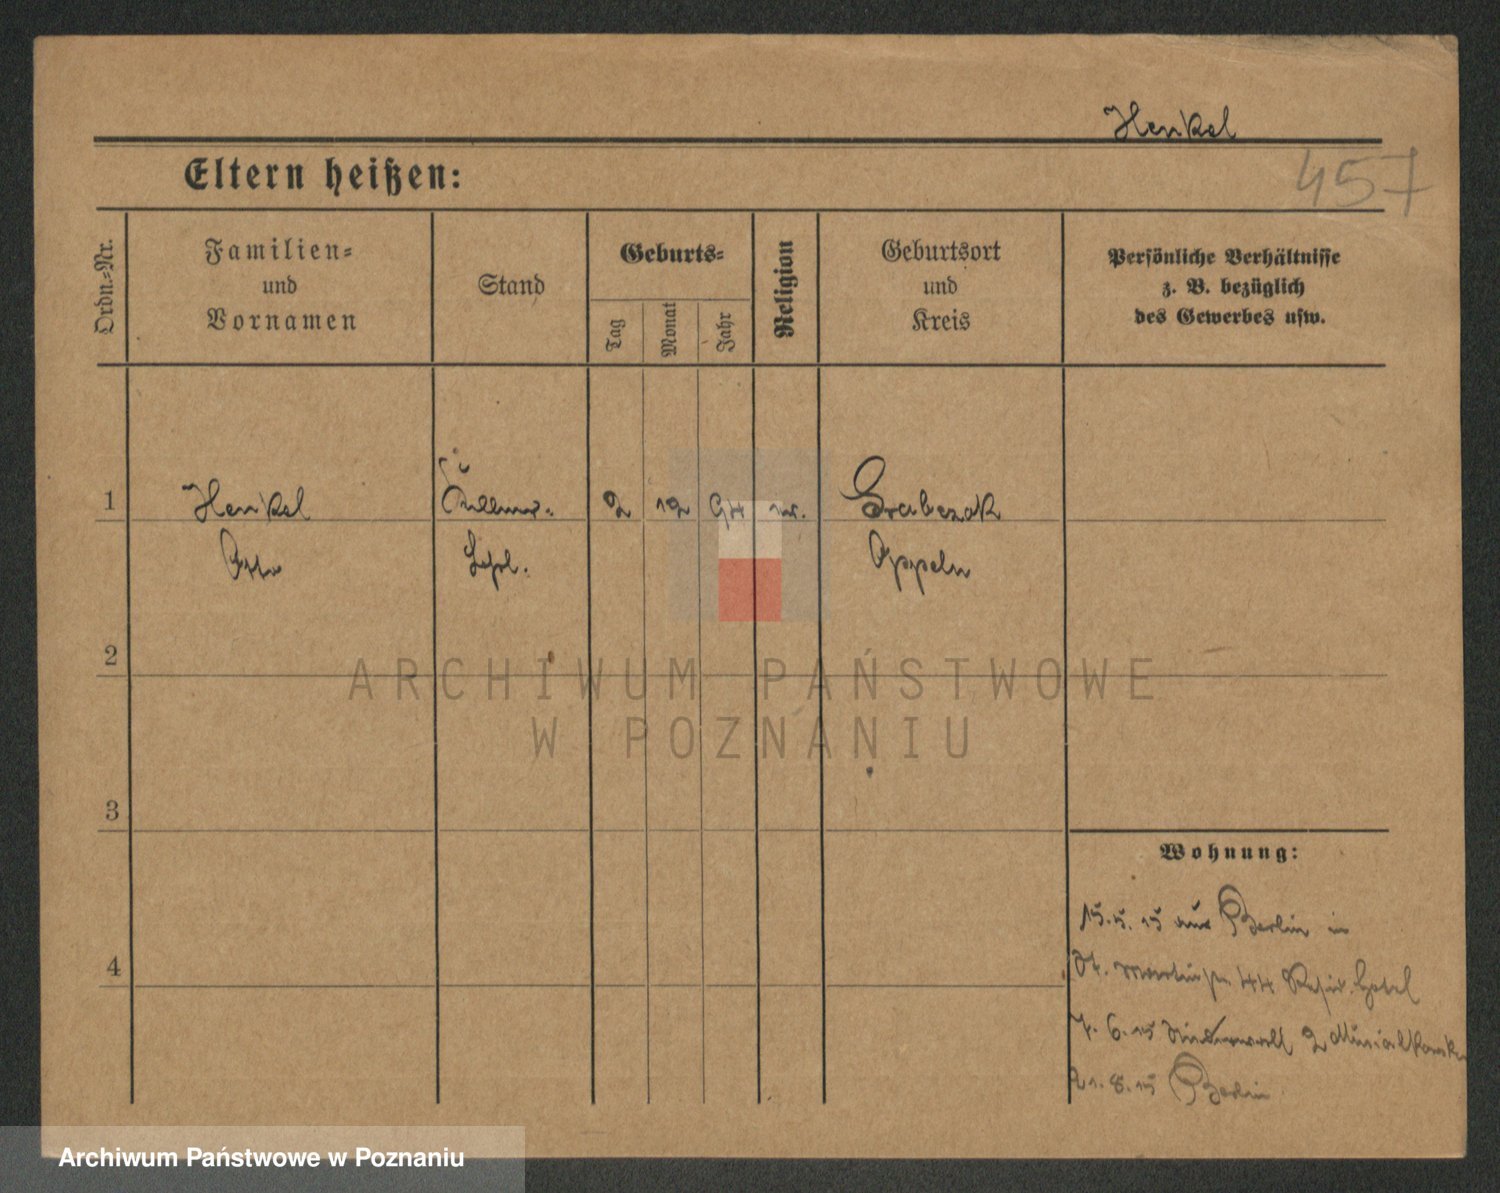 Henkel
457
Eltern heißen:
Ordn.-Nr.
Familien-
und
Vornamen
Stand
Geburts-
Tag
Monat
Jahr
Religion
Geburtsort
und
Kreis
Persönliche Verhältnisse
z. B. bezüglich
des Gewerbes usw.
1
Henkel
Kellner-
2
12
94
Grabczok
Otto
Lehrl.
Oppeln
2
ARCHIWUM PAŃSTWOWE
W POZNANIU
3
Wohnung:
15.5.15 aus Berlin in
St. Martinstr. 44 Resid. Hotel
4
7.6.15 Niederwall 2
21.8.15 Berlin
Archiwum Państwowe w Poznaniu